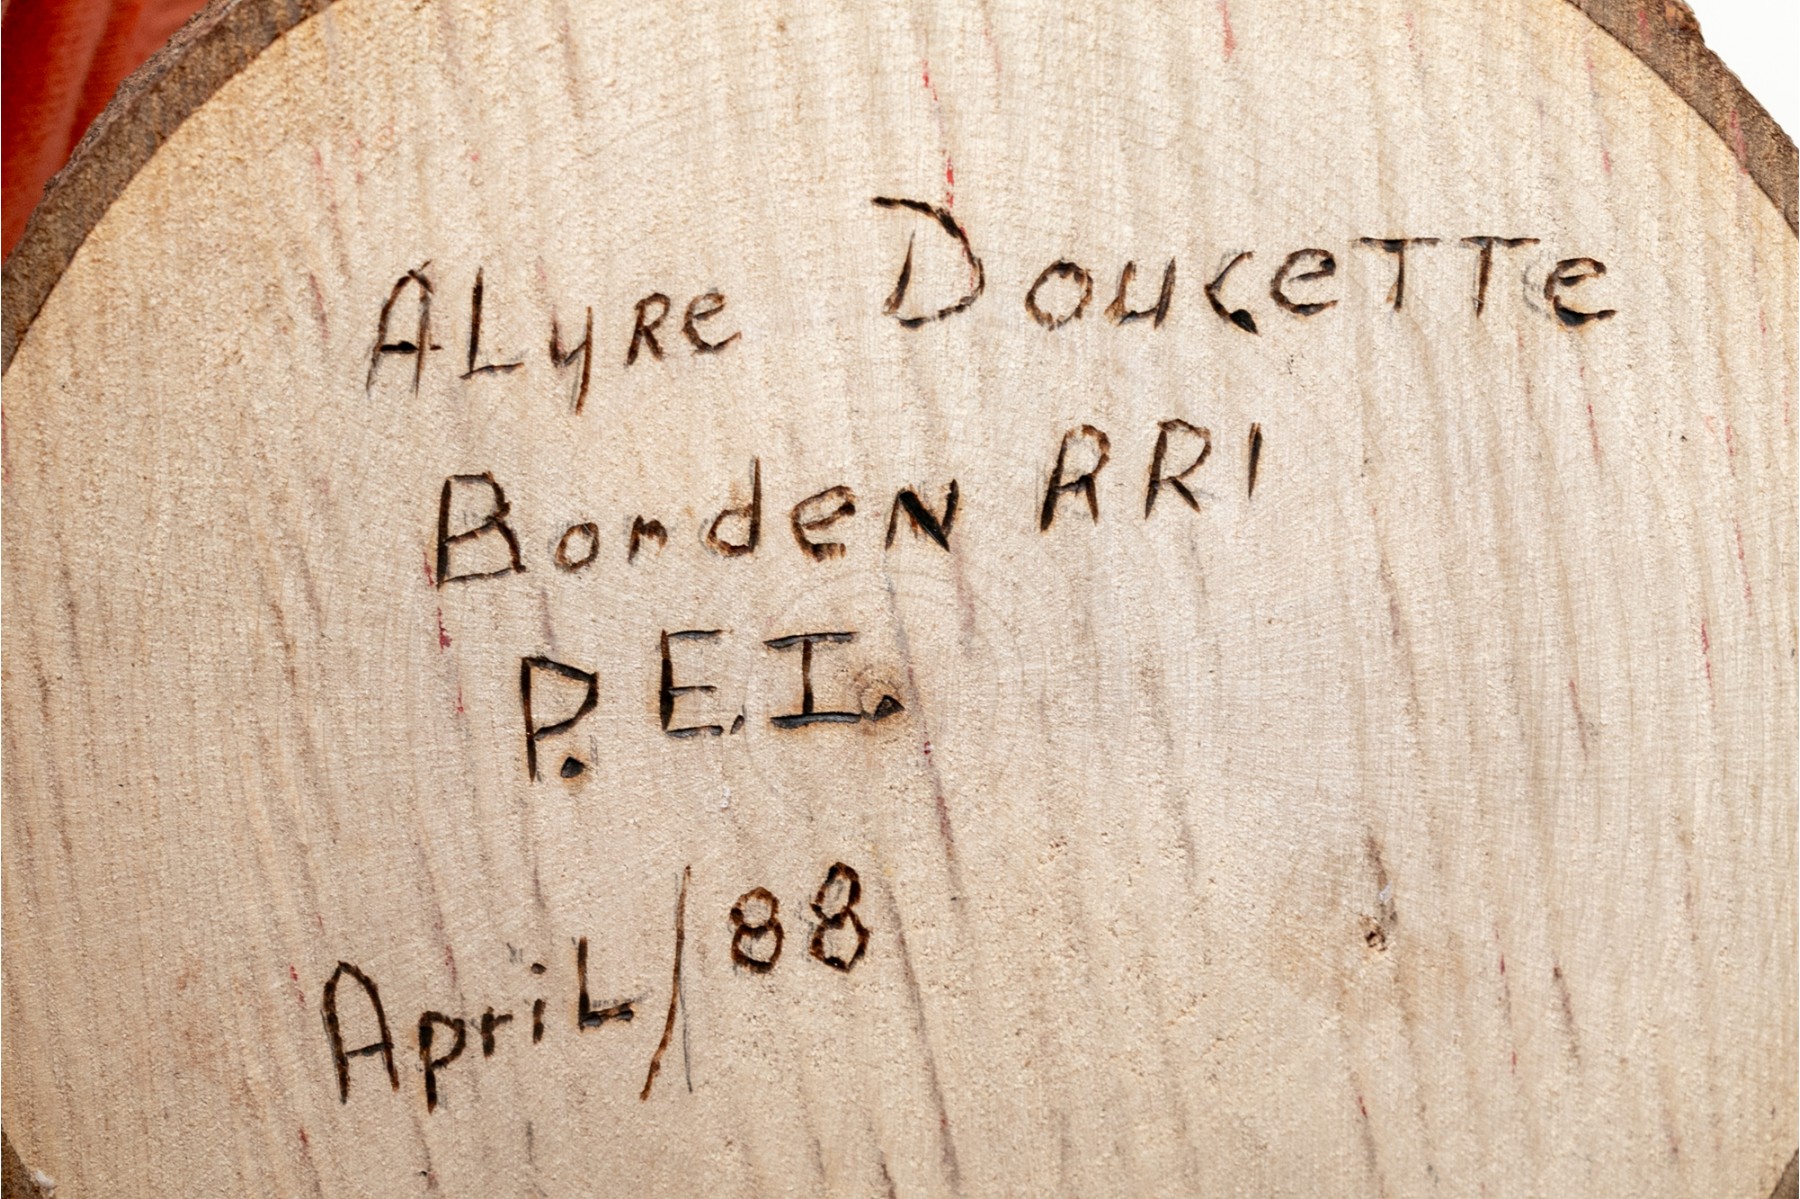 ALyre Doucette
Borden RR1
P.E.I.
April/88